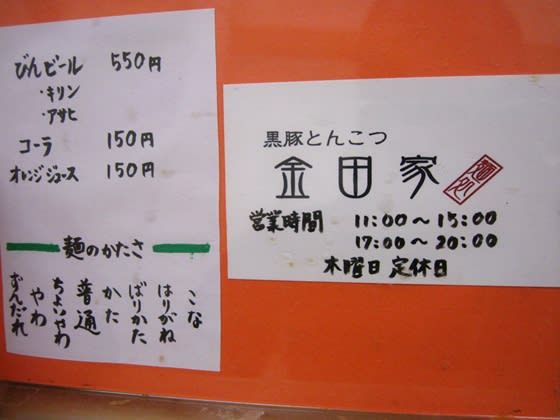 びんビール 550円
・キリン
・アサヒ
コーラ 150円
オレンジジュース 150円
麺のかたさ
こな
はりがね
ばりかた
かた
普通
ちょいやわ
やわ
ずんだれ
黒豚とんこつ
金田家
麺処
営業時間 11:00〜15:00
17:00〜20:00
木曜日 定休日